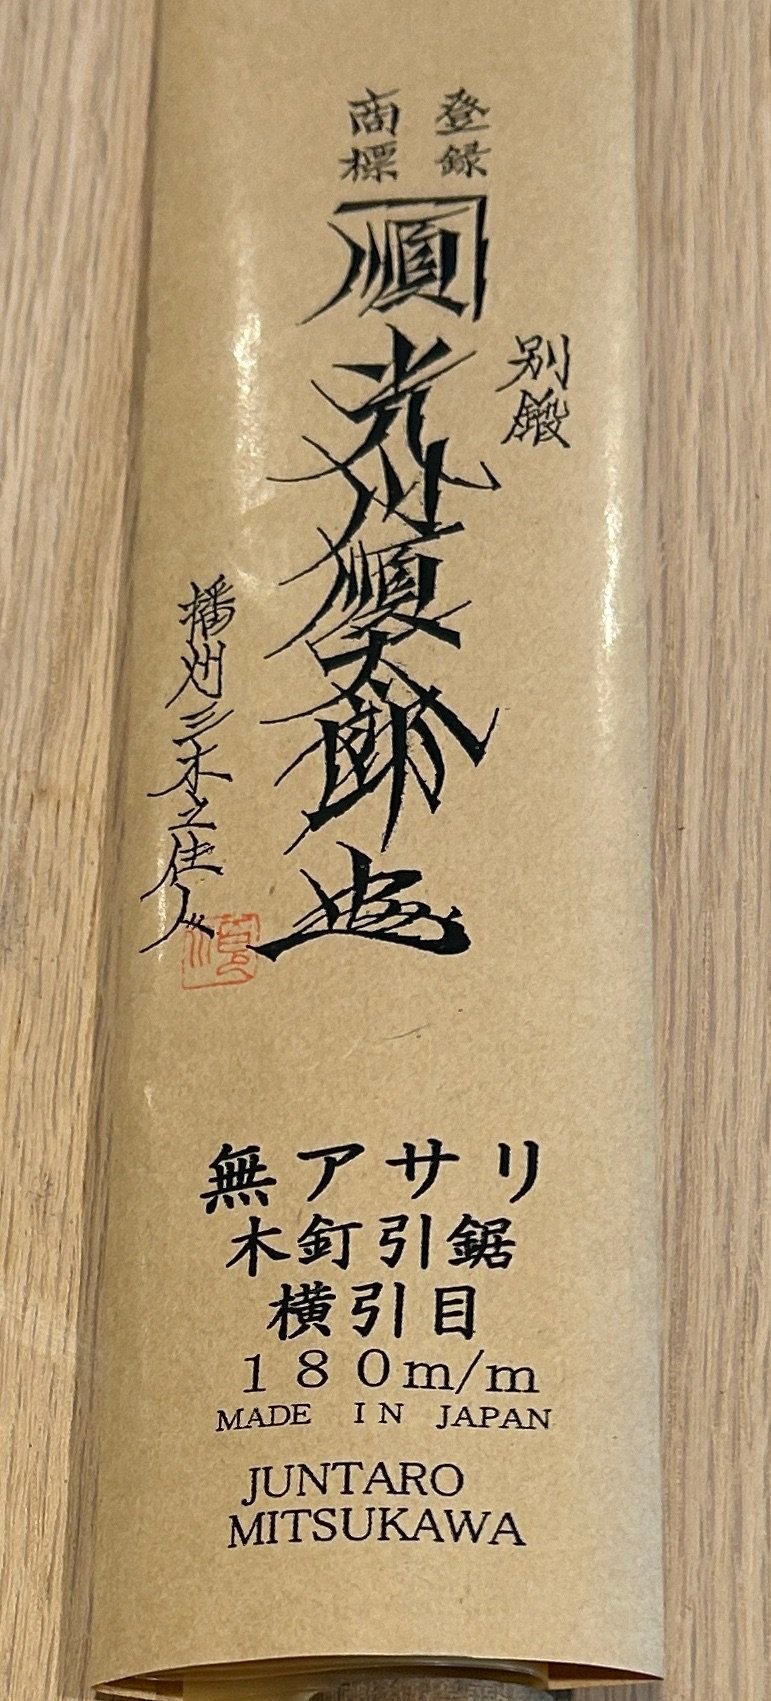 登録
商標
順
別鍛
光川順太郎
播州三木之住人
順
無アサリ
木釘引鋸
横引目
180m/m
MADE IN JAPAN
JUNTARO
MITSUKAWA